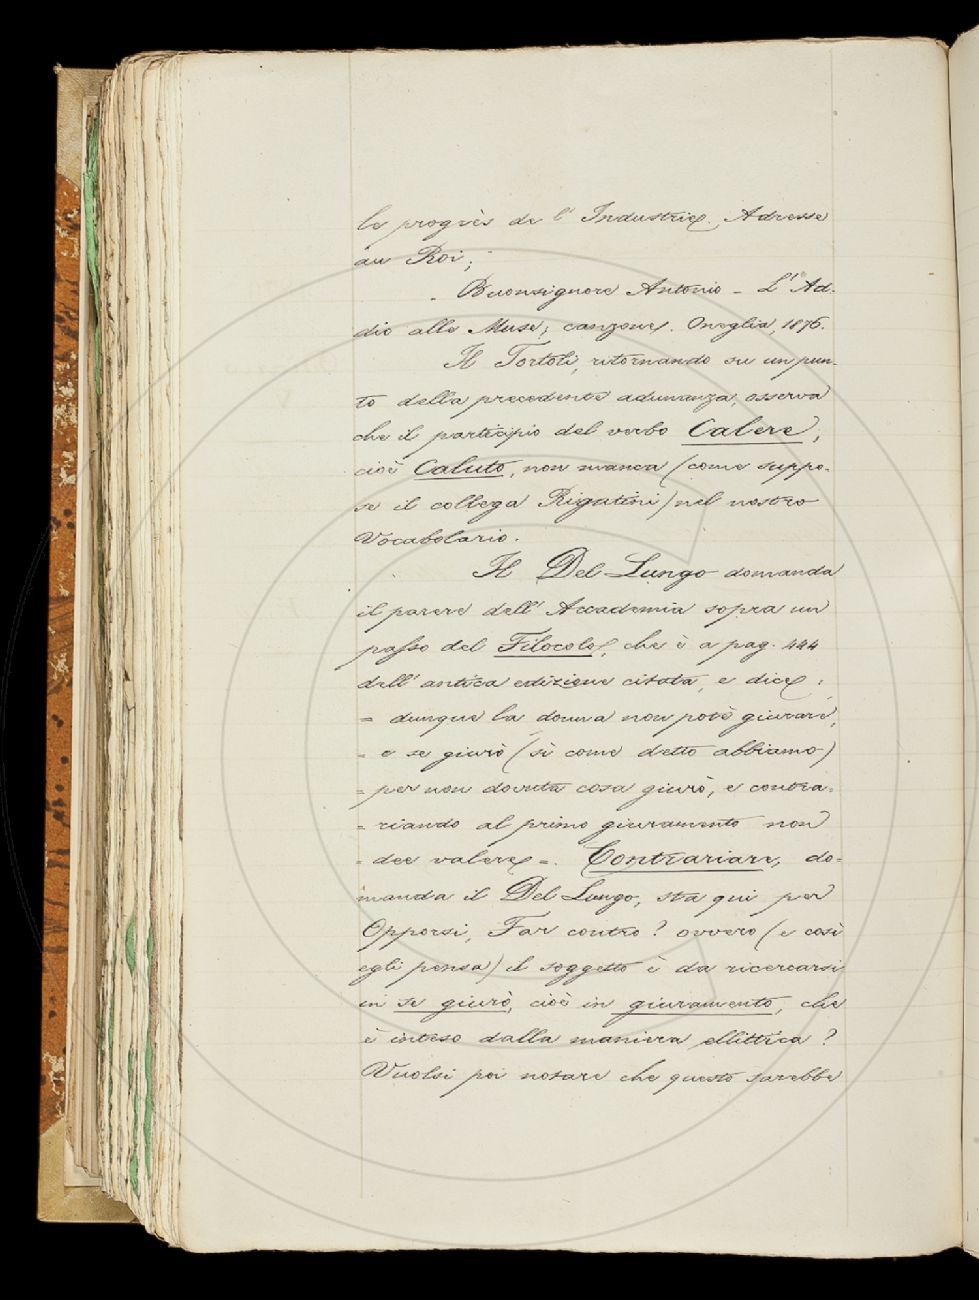 le progrès de l' Industrie. Adresse
au Roi;
- Buonsignore Antonio - L' Ad-
dio alle Muse; canzone. Oneglia, 1876.
Il Tortoli, ritornando su un pun-
to della precedente adunanza, osserva
che il participio del verbo Calere,
cioè Caluto, non manca (come suppo-
se il collega Rigutini) nel nostro
Vocabolario.
Il Del Lungo domanda
il parere dell' Accademia sopra un
passo del Filocolo, che è a pag. 444
dell' antica edizione citata, e dice:
= dunque la donna non potè giurare,
= e se giurò (sì come detto abbiamo)
= per non dovuta cosa giurò, e contra-
= riando al primo giuramento non
= dee valere =. Contrariare, do-
manda il Del Lungo, sta qui per
Opporsi, Far contro? ovvero (e così
egli pensa) il soggetto è da ricercarsi
in se giurò, cioè in giuramento, che
è inteso dalla maniera ellittica?
Vuolsi poi notare che questo sarebbe